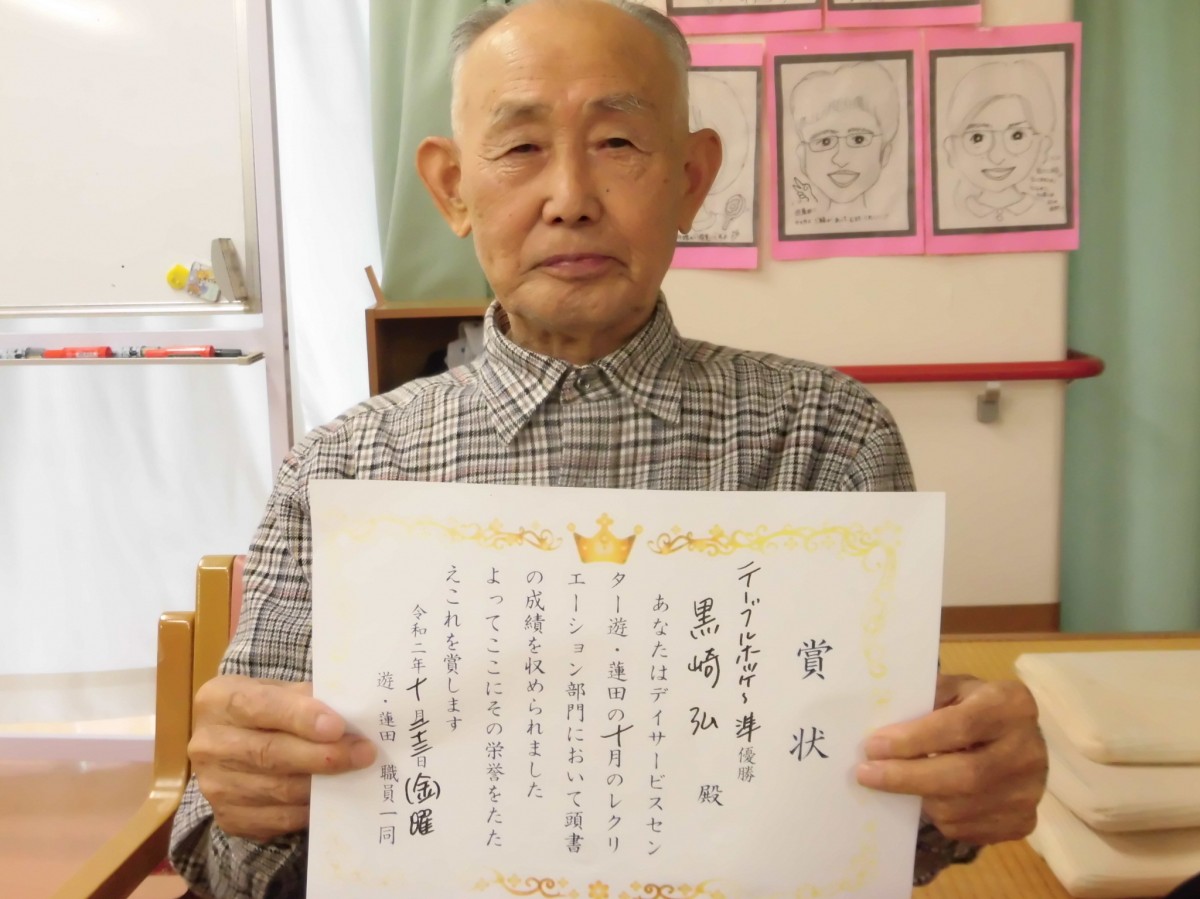 賞状
テーブルホッケー準優勝
黒崎弘 殿
あなたはデイサービスセン
ター遊・蓮田の十月のレクリ
エーション部門において頭書
の成績を収められました
よってここにその栄誉をたた
えこれを賞します
令和二年十月二十三日(金)曜
遊・蓮田 職員一同